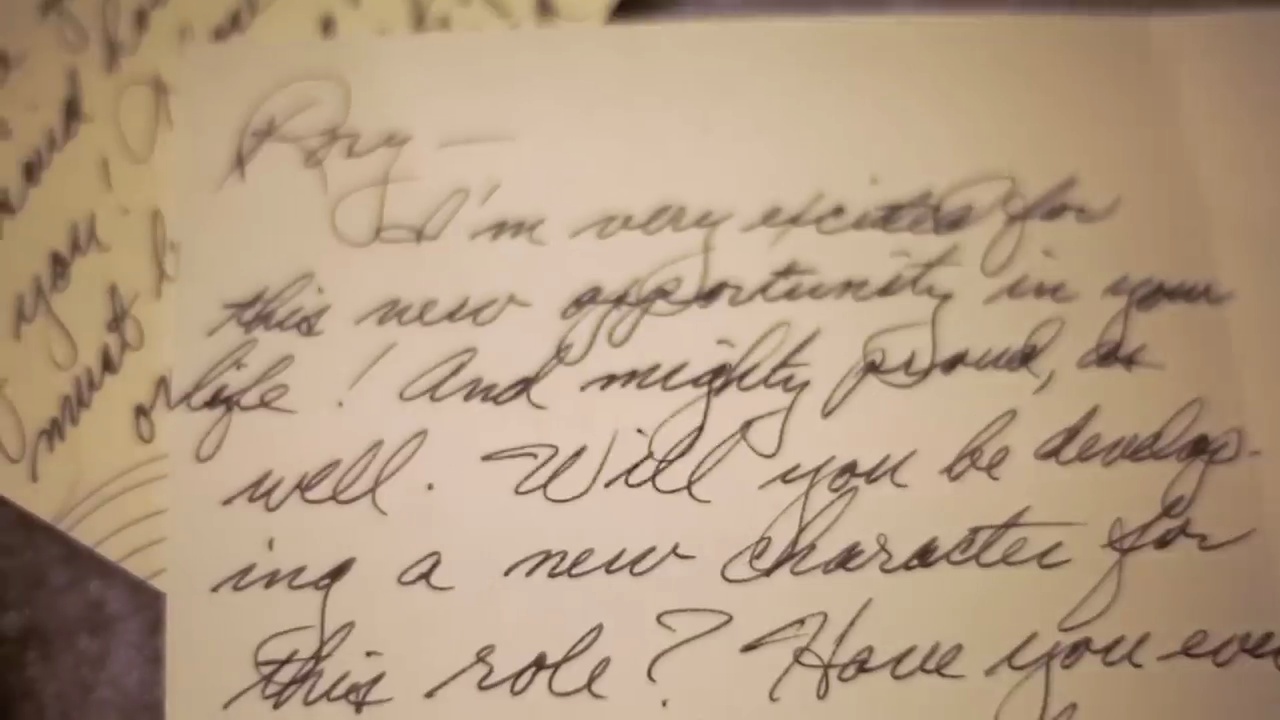 Rory —
I'm very excited for
this new opportunity in your
life! And mighty proud, as
well. Will you be develop-
ing a new character for
this role? Have you eve
you!
must
or